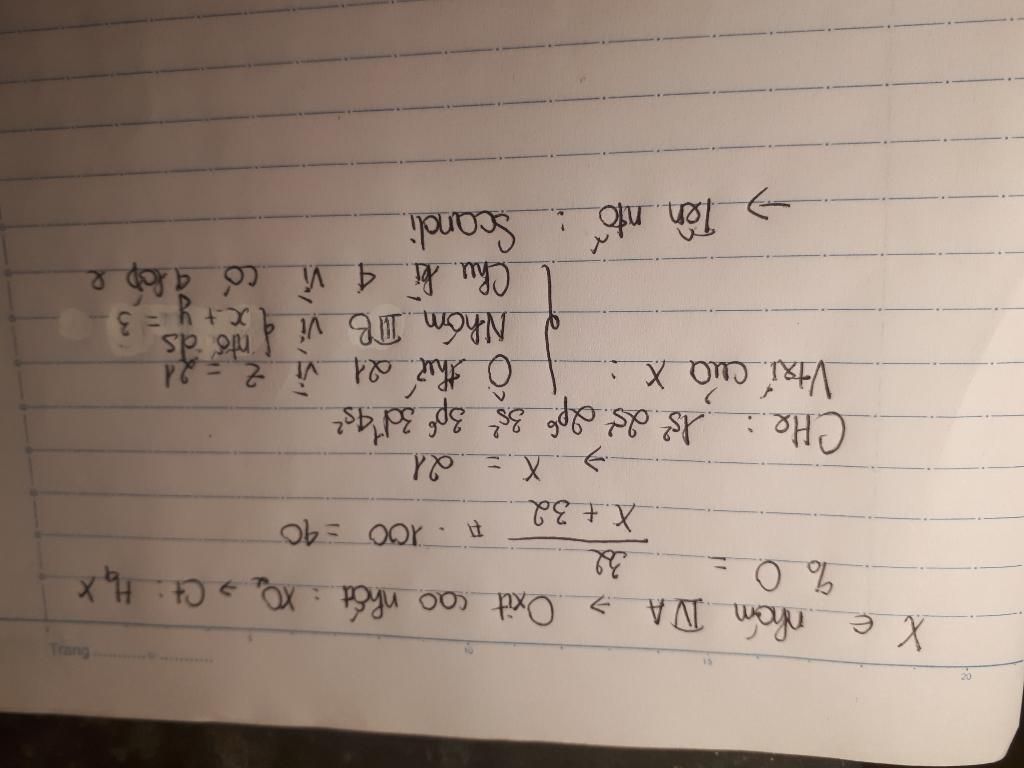 Trang
10 15 20
X ∈ nhóm IVA → Oxit cao nhất : XO₂ → Ct : H₄X
% O = 32 / (X + 32) . 100 = 40
→ X = 21
CHe : 1s² 2s² 2p⁶ 3s² 3p⁶ 3d¹ 4s²
Vtrí của X : { Ô thứ 21 vì Z = 21
Nhóm IIIB vì { ntố ds
x + y = 3
Chu kì 4 vì có 4 lớp e
→ Tên ntố : Scandi